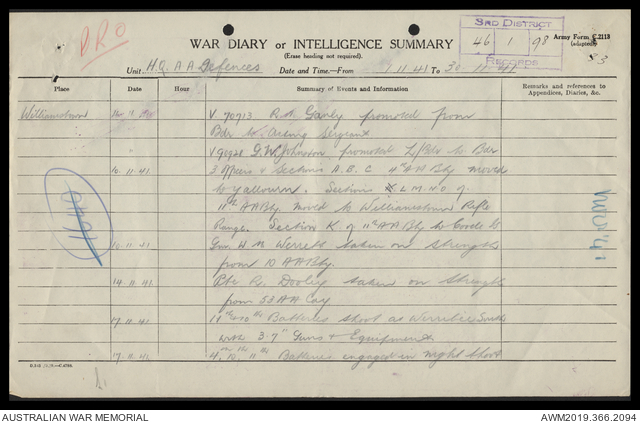 PRO
3RD DISTRICT
46 1 98
RECORDS
Army Form C.2118
(adapted)
WAR DIARY or INTELLIGENCE SUMMARY
(Erase heading not required).
Unit H.Q. A A Defences Date and Time—From 11.41 To 30.11.41
Place Date Hour Summary of Events and Information Remarks and references to Appendices, Diaries, &c.
Williamstown 11 V 90713 R. A. promoted from
Bdr to Acting Sergeant
" V90928 G.W. Johnston promoted L/Bdr to Bdr
10.11.41 3 Officers + Sections A.B.C 4th AA Bty moved
to Yallourn. Sections L.M.N.O of
11th AA Bty moved to Williamstown Rifle
Range. Section K of 11th AA Bty to Coode Is
10.11.41 Gnr. W H Werrett taken on Strength
from 10 AA Bty.
14.11.41 Pte R. Dooley taken on Strength
from 53 AA Coy
17.11.41 10th Batteries Shoot at Werribee South
with 3.7" Guns + Equipment
17.11.41 4th 10th 11th Batteries engaged in night Shoot
AUSTRALIAN WAR MEMORIAL
AWM2019.366.2094